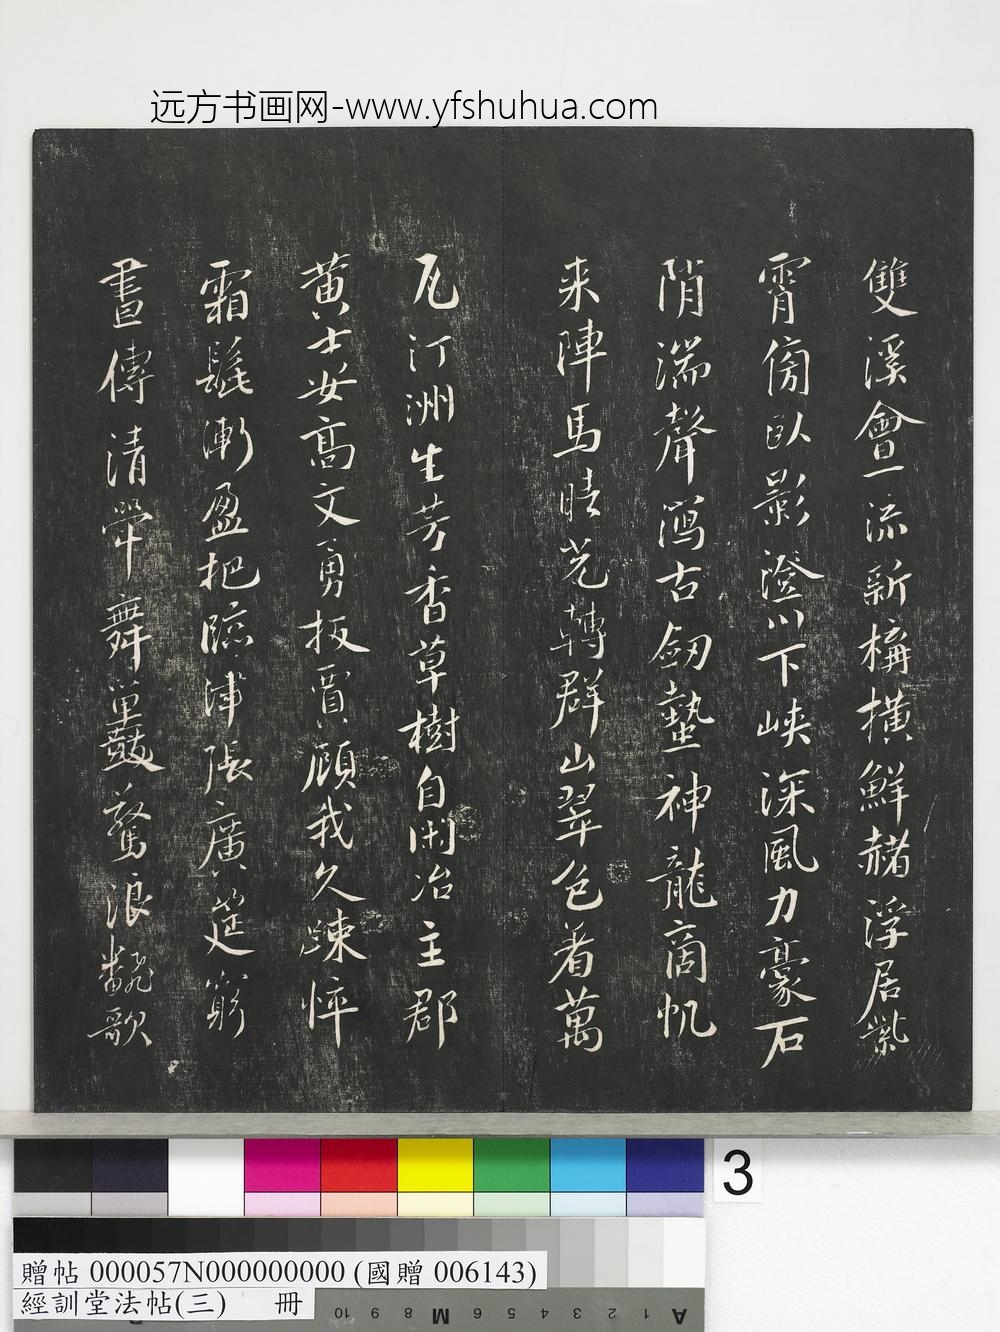 远方书画网-www.yfshuhua.com
雙溪會一流新構橫鮮赭浮居紫
霄傍臥影澄川下峡深風力豪石
陗湍聲瀉古劒蟄神龍商帆
来陣馬晴光轉群山翠色着萬
瓦汀洲生芳香草樹自閑冶主郡
黄士安高文勇扳賈顧我久踈悴
霜髭漸盈把臨津張廣筵窮
晝傳清斝舞䶂鼓驚浪翻歌
3
贈帖 000057N000000000 (國贈 006143)
經訓堂法帖(三) 冊
10 9 8 M 6 5 4 3 2 1 A